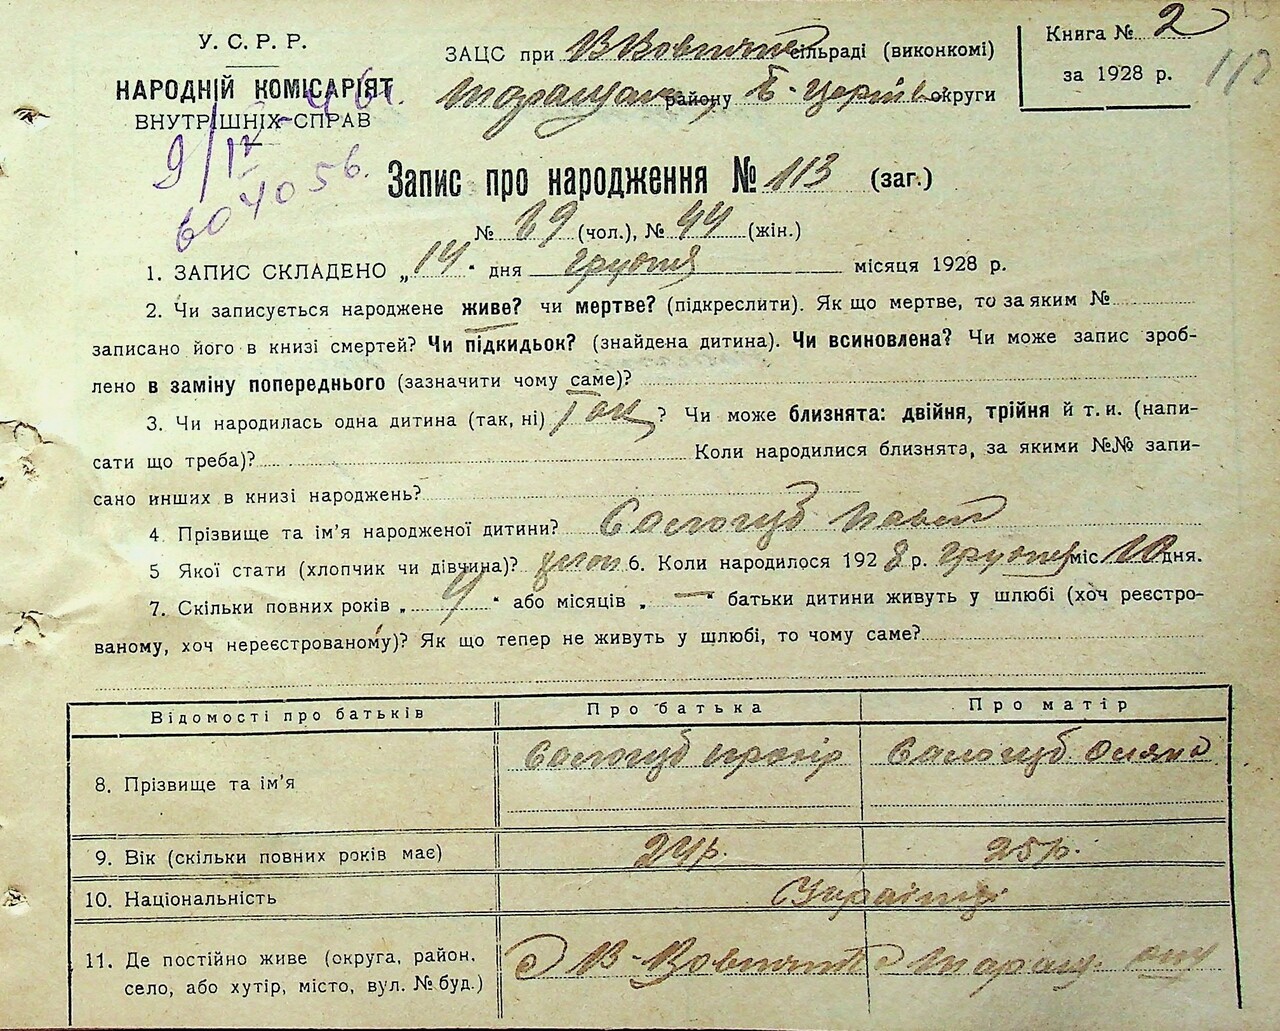 У. С. Р. Р.
НАРОДНІЙ КОМІСАРІЯТ
ВНУТРІШНІХ СПРАВ
9/IV-46г.
604056.
ЗАЦС при В Вовнянській сільраді (виконкомі)
Таращан. району Б-Церків округи
Книга № 2
за 1928 р.
Запис про народження № 113 (заг.)
№ 69 (чол.), № 44 (жін.)
1. ЗАПИС СКЛАДЕНО „14" дня грудня місяця 1928 р.
2. Чи записується народжене живе? чи мертве? (підкреслити). Як що мертве, то за яким №
записано його в книзі смертей? Чи підкидьок? (знайдена дитина). Чи всиновлена? Чи може запис зроб-
лено в заміну попереднього (зазначити чому саме)?
3. Чи народилась одна дитина (так, ні) Так ? Чи може близнята: двійня, трійня й т. и. (напи-
сати що треба)? Коли народилися близнята, за якими №№ запи-
сано инших в книзі народжень?
4. Прізвище та ім'я народженої дитини? Сологуб
5 Якої стати (хлопчик чи дівчина)? 6. Коли народилося 1928 р. грудня міс 10 дня.
7. Скільки повних років „4" або місяців „—" батьки дитини живуть у шлюбі (хоч реєстро-
ваному, хоч нереєстрованому)? Як що тепер не живуть у шлюбі, то чому саме?
Відомості про батьків Про батька Про матір
8. Прізвище та ім'я Сологуб Сологуб
9. Вік (скільки повних років має) 24р. 25р.
10. Національність Українці
11. Де постійно живе (округа, район,
село, або хутір, місто, вул. № буд.) с В-Вовнянка Таращ.